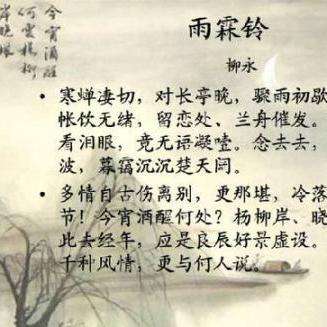 雨霖铃
柳永
• 寒蝉凄切，对长亭晚，骤雨初歇
帐饮无绪，留恋处、兰舟催发。
看泪眼，竟无语凝噎。念去去，
波，暮霭沉沉楚天阔。
• 多情自古伤离别，更那堪，冷落
节！今宵酒醒何处？杨柳岸、晓
此去经年，应是良辰好景虚设。
千种风情，更与何人说。
今宵酒醒
何处杨柳
岸晓